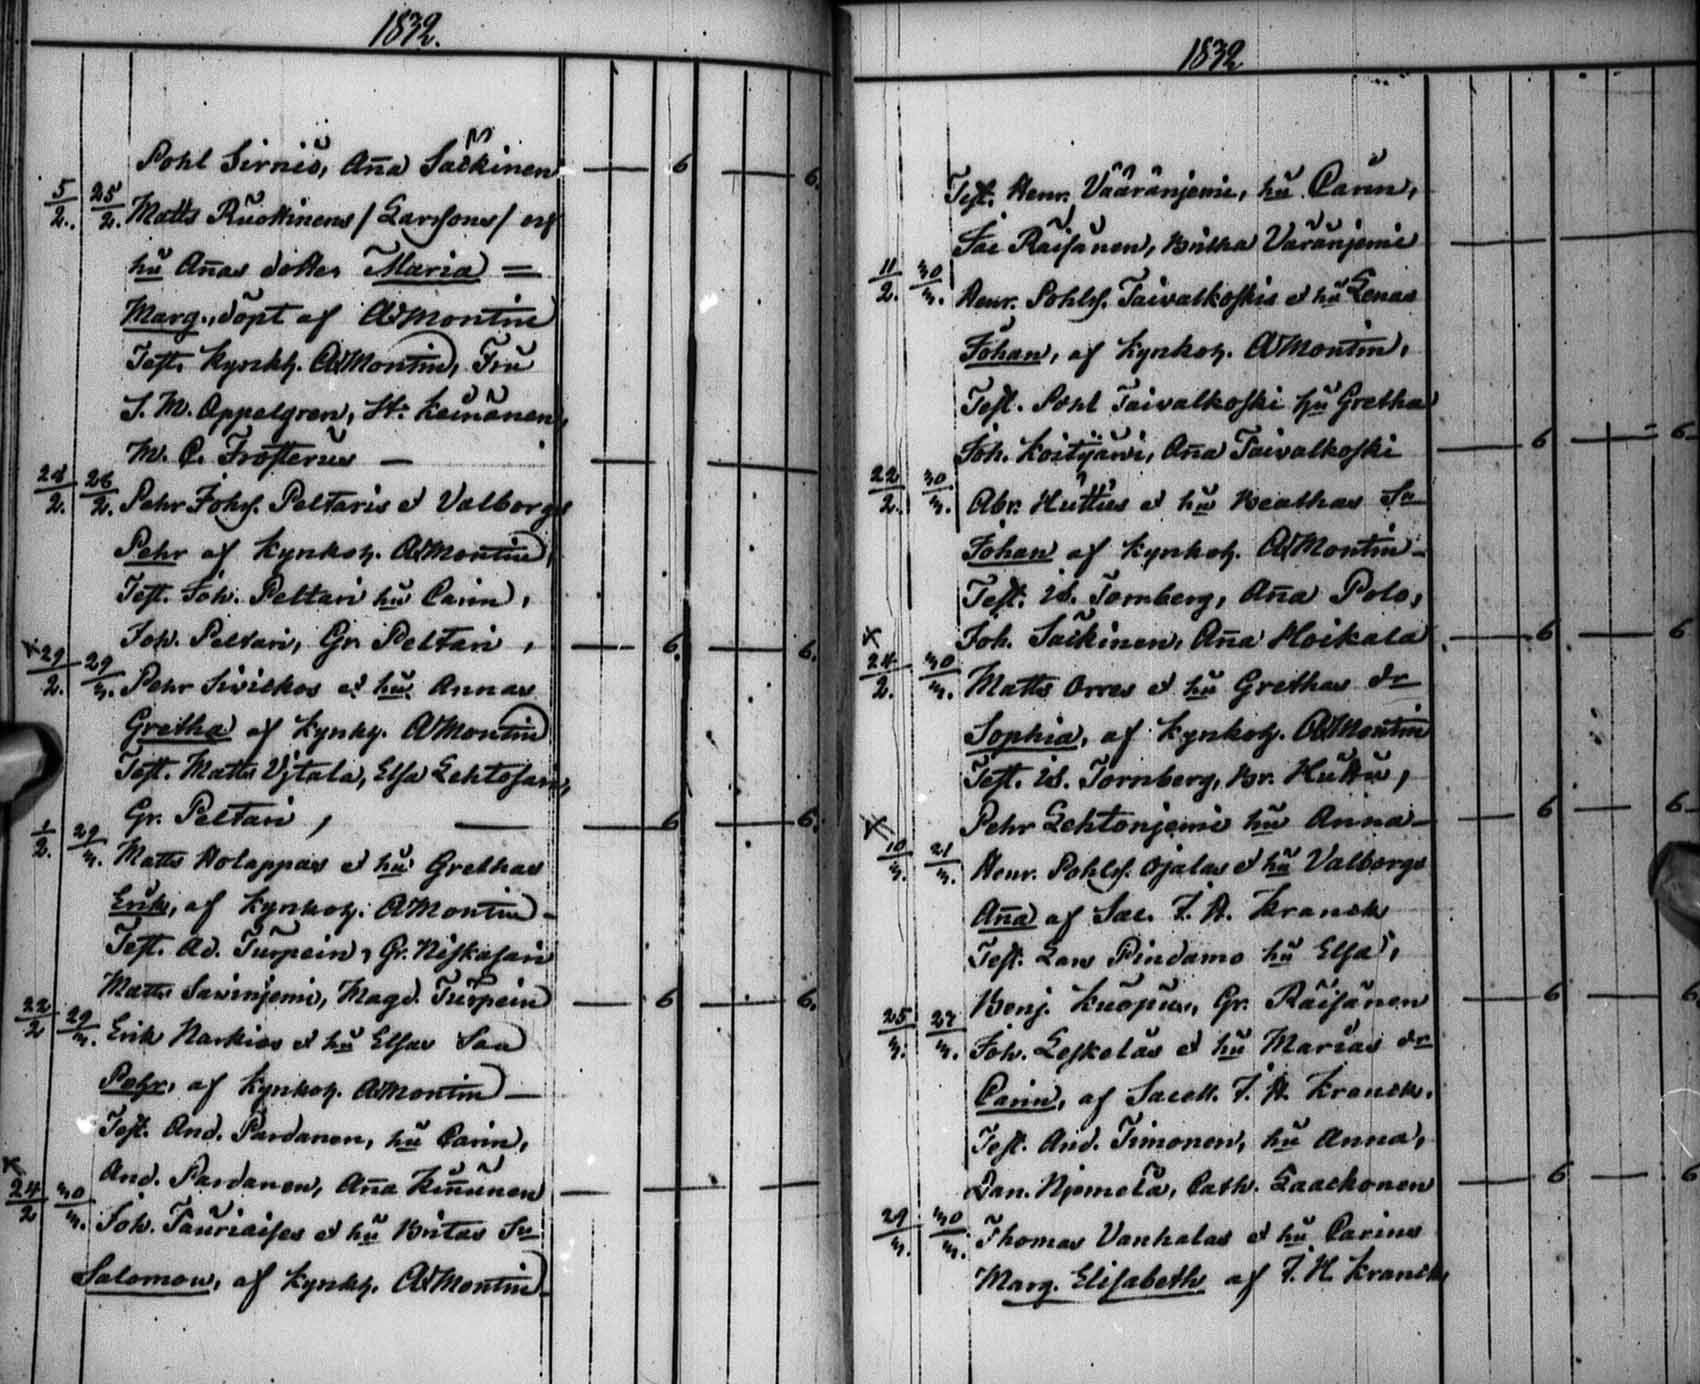 1832.
Pohl Sirniö, Aña Säckinen — 6 — 6.
5/2. 25/2. Matts Ruokinens / Larssons / och
hŭ Añas dotter Maria =
Marg., döpt af AdMontin
Test. Kyrkh. AdMontin, Fru
S. M. Appelgren, St. Keinänen,
M. C. Frosterus —
24/2. 26/2. Pehr Johs. Peltaris et Valborgs
Pehr af Kyrkoh. AdMontin,
Test. Joh. Peltari hŭ Carin,
Joh. Peltari, Gr. Peltari, — 6. — 6.
29/2. 29/3. Pehr Siviekos et hŭ Annas
Gretha af Kyrkh. AdMontin
Test. Matts Ylitala, Elsa Lehtosari,
Gr. Peltari, — 6 — 6.
1/2. 29/3. Matts Holappas et hŭ Grethas
Erik, af Kyrkoh. AdMontin —
Test. Ad. Turpein, Gr. Niskasari
Matts Savinjemi, Magd. Turpein — 6 — 6.
22/2 29/3. Erik Narkios et hŭ Elsas Son
Pehr, af Kyrkoh. AdMontin —
Test. And. Pardanen, hŭ Carin,
And. Pardanen, Aña Kinnunen —
24/2 30/3. Joh. Tauriaises et hŭ Britas Sn
Salomon, af Kyrkh. AdMontin
1832
Test. Henr. Vääränjemi, hŭ Carin,
Jac Räisänen, Britha Väränjemi —
11/2. 30/3. Henr. Pohls. Taivalkoskis et hŭ Lenas
Johan, af Kyrkoh. AdMontin,
Test. Pohl Taivalkoski hŭ Gretha
Joh. Koitijärvi, Aña Taivalkoski — 6 — 6
22/2. 30/3. Abr. Huttus et hŭ Beathas Sn
Johan af Kyrkoh. AdMontin —
Test. Is. Tornberg, Aña Polo,
Joh. Säikinen, Aña Hoikala — 6 — 6
24/2. 30/3. Matts Orres et hŭ Grethas dr
Sophia, af Kyrkoh. AdMontin
Test. Is. Tornberg, Br. Huttu,
Pehr Lehtonjemi hŭ Anna — 6 — 6
10/3. 21/3. Henr. Pohls. Ojalas et hŭ Valborgs
Aña af Sac. F. H. Kranck
Test. Lars Pindamo hŭ Elsa,
Benj. Kuopus, Gr. Räisänen — 6 — 6
25/3. 27/3. Joh. Leskeläs et hŭ Marias dr
Carin, af Sacell. F. H. Kranck.
Test. And. Timonen, hŭ Anna,
Dan. Njemelä, Cath. Laackonen — 6 — 6
29/3. 30/3. Thomas Vanhalas et hŭ Carins
Marg. Elisabeth af F. H. Kranck